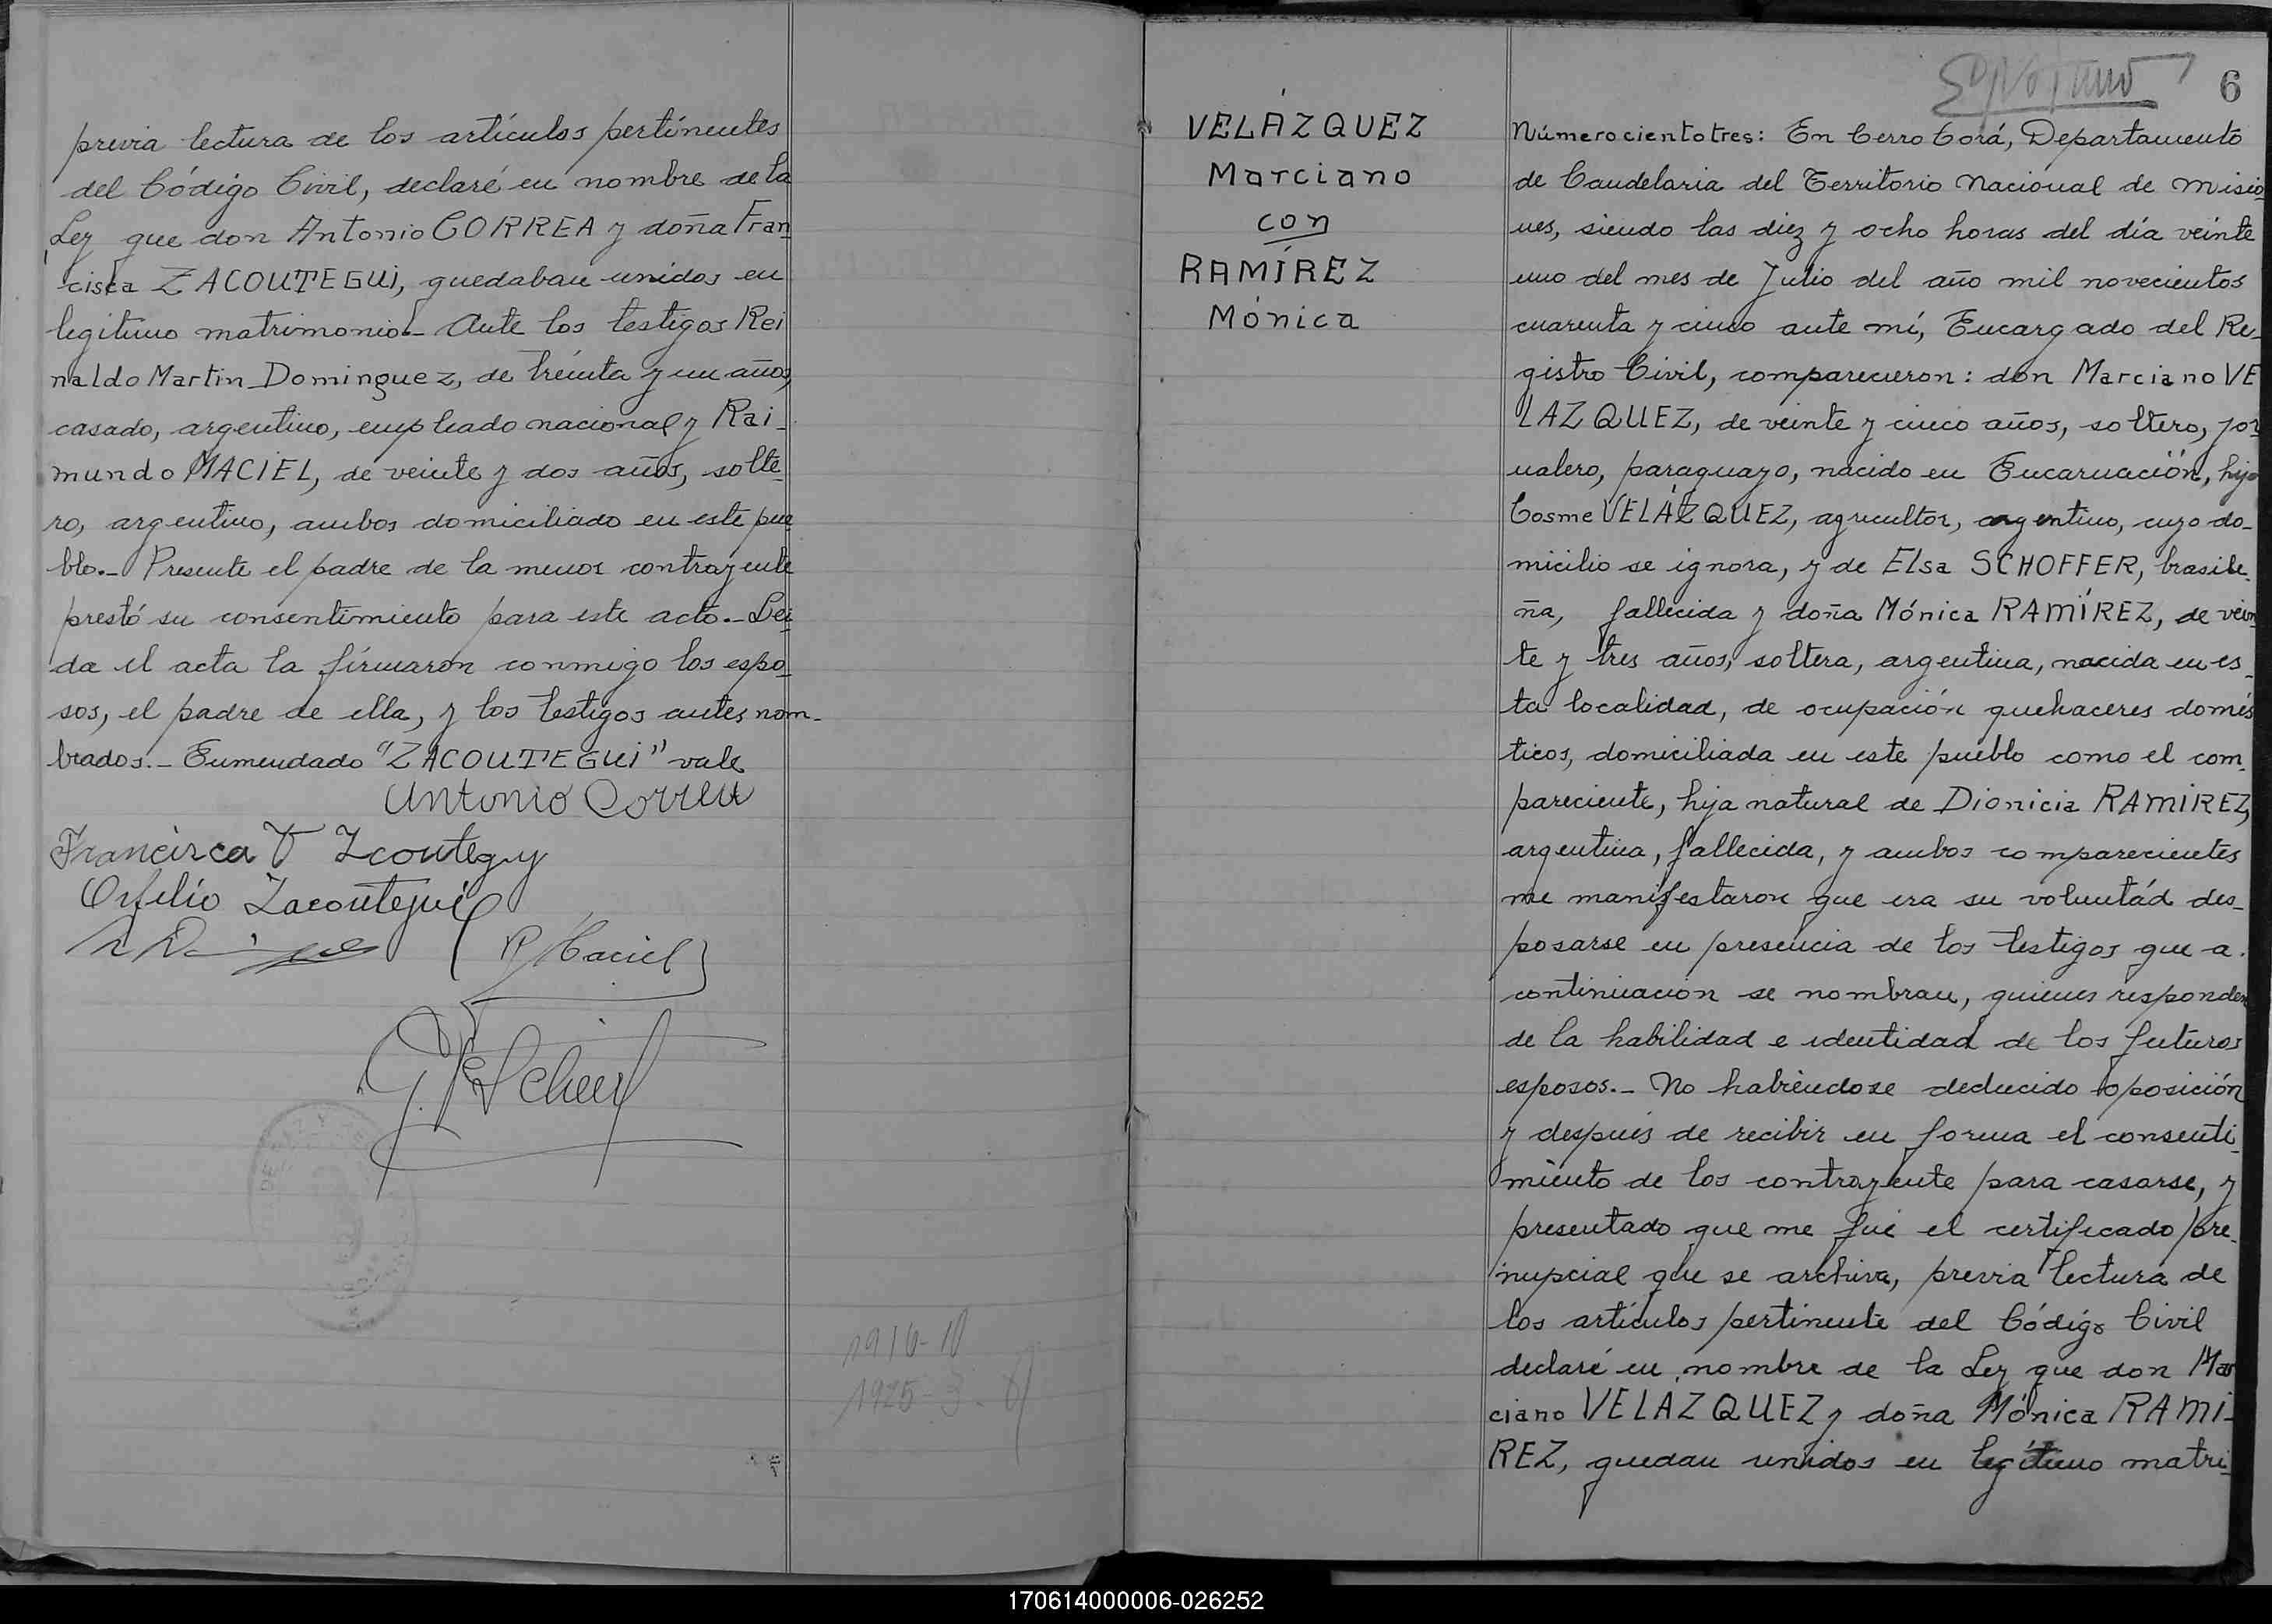 previa lectura de los artículos pertinentes
del Código Civil, declaré en nombre de la
Ley que don Antonio CORREA y doña Fran
cisca ZACOUTEGUI, quedaban unidos en
legitimo matrimonio.- Ante los testigos Rei
naldo Martin Dominguez, de treinta y un años,
casado, argentino, empleado nacional y Rai-
mundo MACIEL, de veinte y dos años, solte-
ro, argentino, ambos domiciliado en este pue
blo.- Presente el padre de la menor contrayente
prestó su consentimiento para este acto.- Lei
da el acta la firmaron conmigo los espo-
sos, el padre de ella, y los testigos antes nom-
brados.- Enmendado "ZACOUTEGUI" vale
Antonio Correa
Francisca V Zcouteguy
Orfelio Zacoutegui
R Maciel
1916-10
1925-3-
6
VELÁZQUEZ
Marciano
con
RAMÍREZ
Mónica
Número ciento tres: En Cerro Corá, Departamento
de Candelaria del Territorio Nacional de Misio
nes, siendo las diez y ocho horas del día veinte
uno del mes de Julio del año mil novecientos
cuarenta y cinco ante mí, Encargado del Re-
gistro Civil, comparecieron: don Marciano VE
LAZQUEZ, de veinte y cinco años, soltero, jor
nalero, paraguayo, nacido en Encarnación, hijo
Cosme VELÁZQUEZ, agricultor, argentino, cuyo do-
micilio se ignora, y de Elsa SCHOFFER, brasile-
ña, fallecida y doña Mónica RAMÍREZ, de vein
te y tres años, soltera, argentina, nacida en es-
ta localidad, de ocupación quehaceres domés
ticos, domiciliada en este pueblo como el com-
pareciente, hija natural de Dionicia RAMIREZ,
argentina, fallecida, y ambos comparecientes
me manifestaron que era su voluntád des-
posarse en presencia de los testigos que a
continuación se nombran, quienes responden
de la habilidad e identidad de los futuros
esposos.- No habiéndose deducido oposición
y después de recibir en forma el consenti-
miento de los contrayente para casarse, y
presentado que me fué el certificado pre-
nupcial que se archiva, previa lectura de
los artículos pertinente del Código Civil
declaré en nombre de la Ley que don Mar
ciano VELAZQUEZ y doña Mónica RAMI-
REZ, quedan unidos en legítimo matri-
170614000006-026252